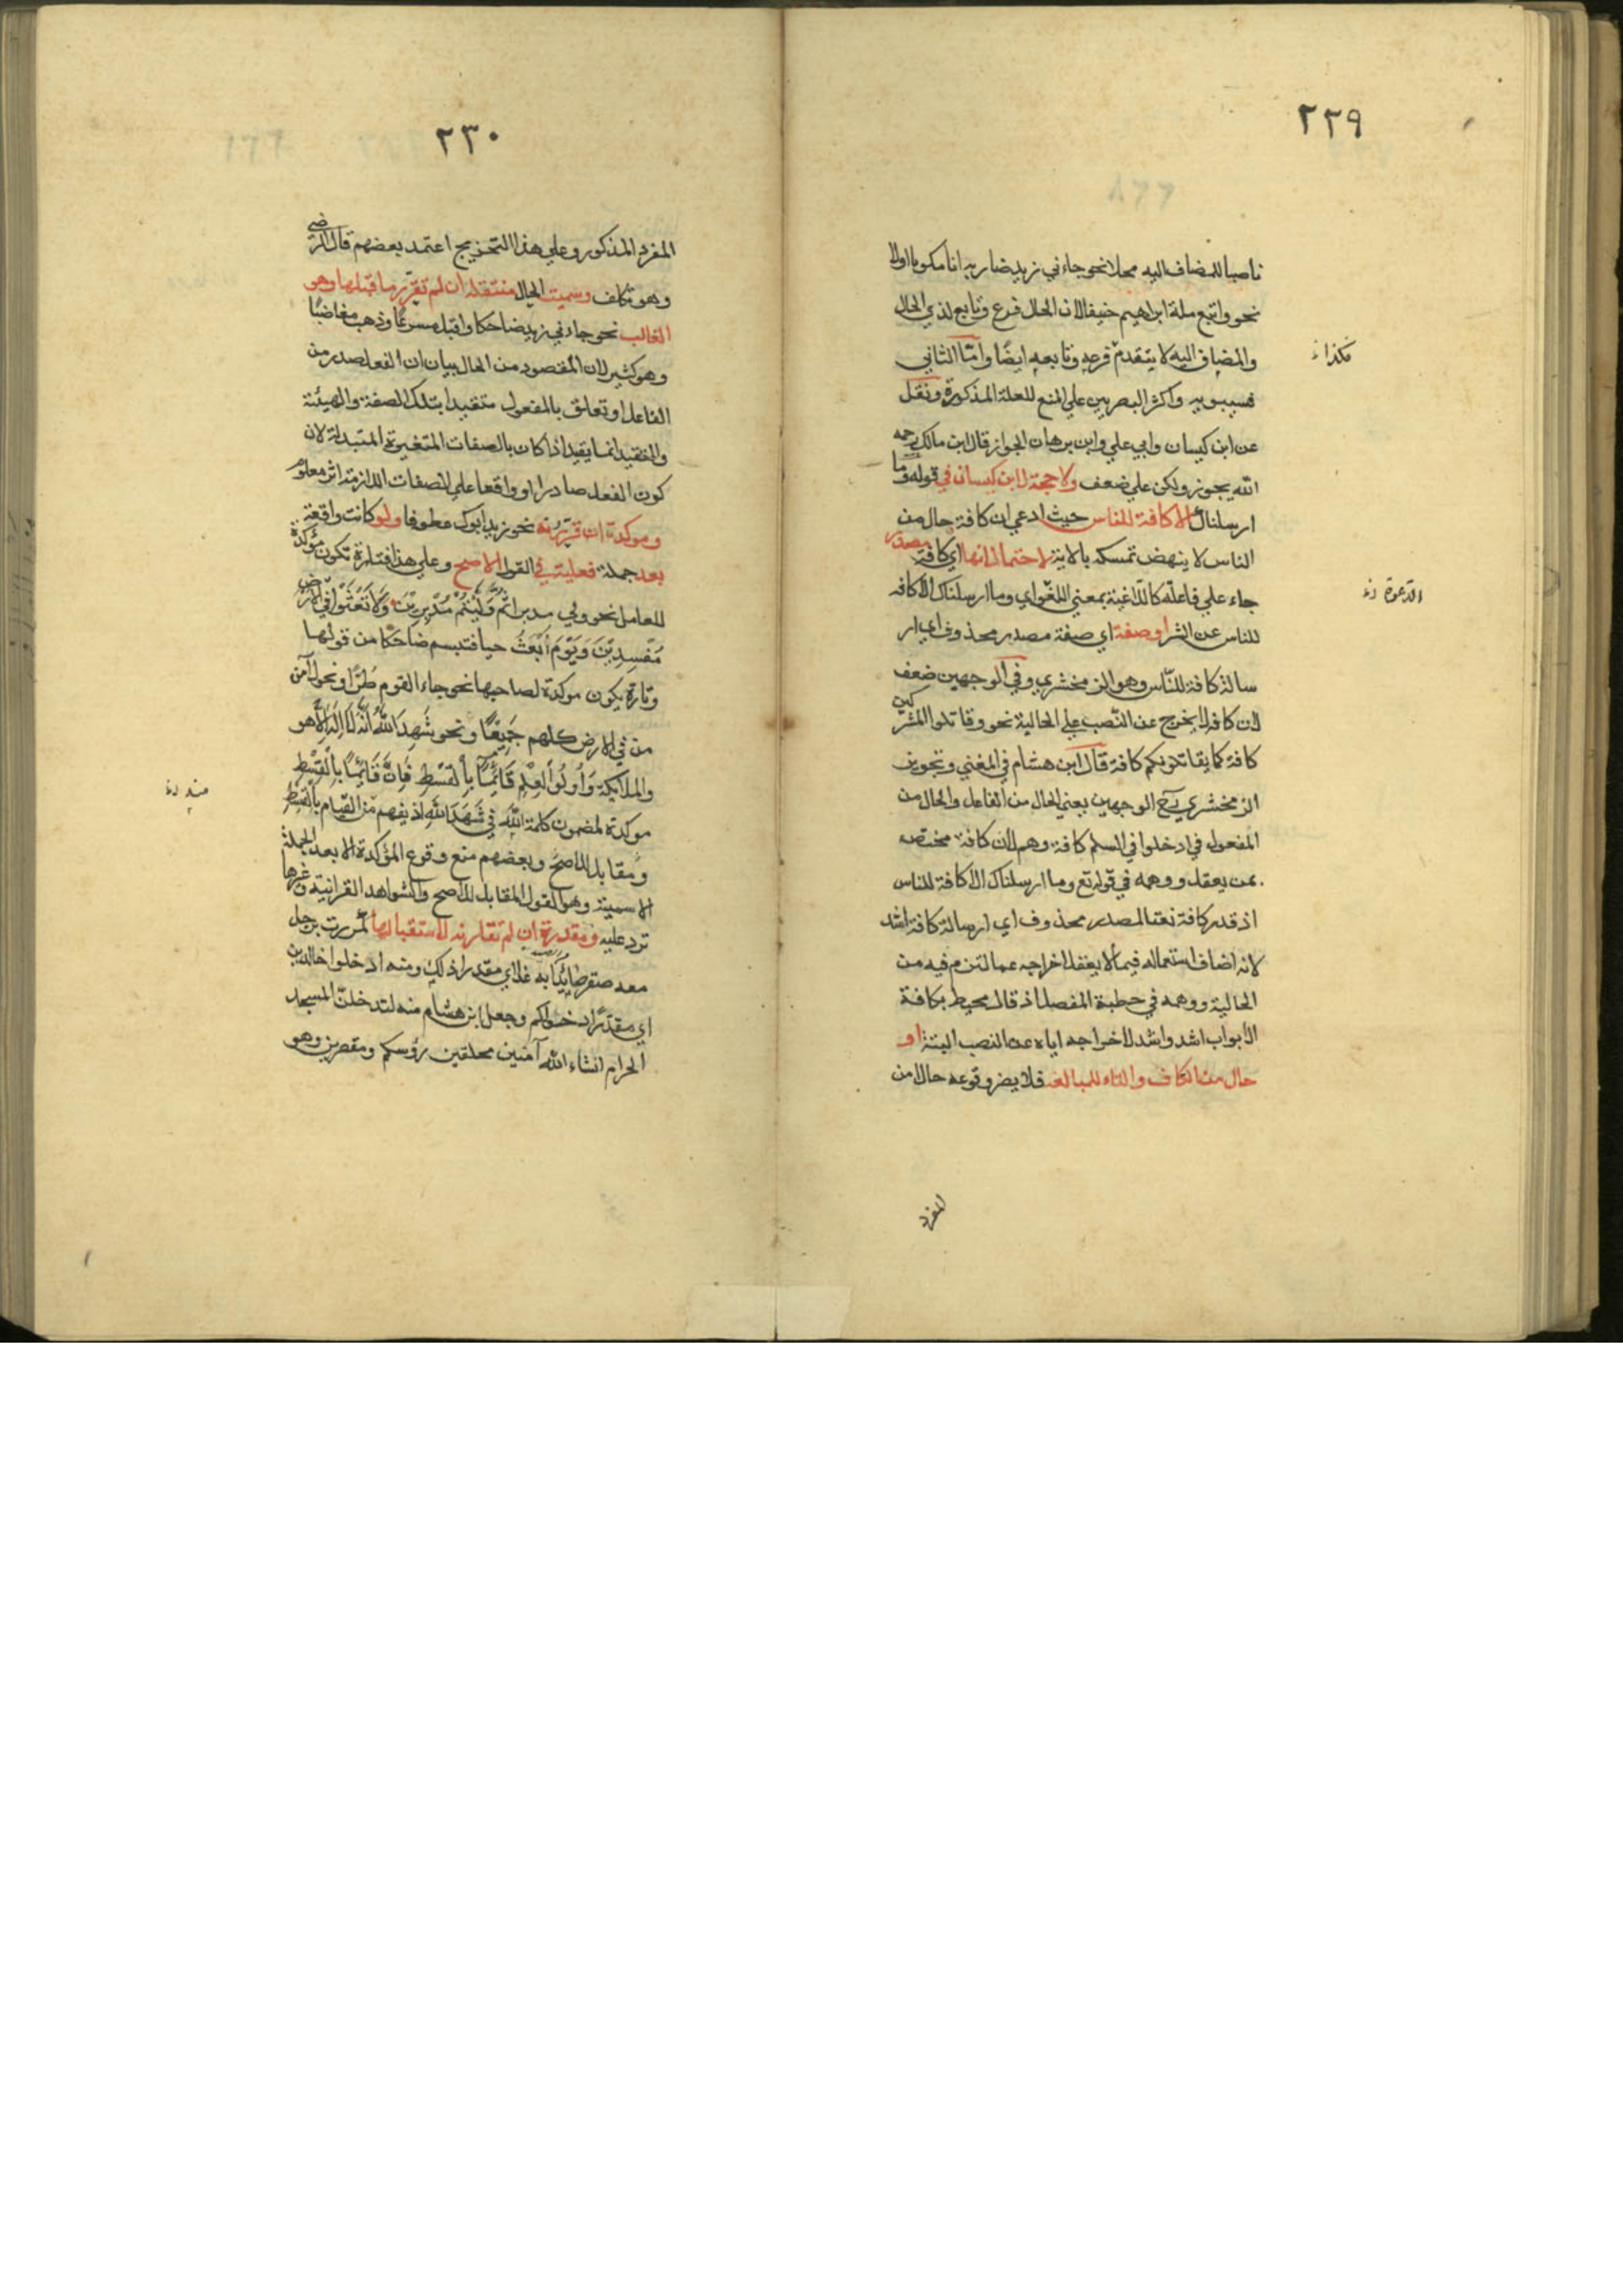 ٢٢٩
ناصبا للمضاف اليه محلا نحو جاءني زيد ضاربه انا مكوبا اولا
نحو واتبع ملة ابراهيم حنيفا لان الحال فرع وتابع لذي الحال
والمضاف اليه لا يتقدم فرعه وتابعه ايضًا وامّا الثاني
فسيبويه واكثر البصريين علي المنع للعلة المذكورة ونقل
عن ابن كيسان وابي علي وابن برهان الجواز قال ابن مالك رحمه
الله يجوز ولكن علي ضعف ولا حجة لابن كيسان في قوله وما
ارسلناك الا كافة للناس حيث ادعي ان كافة حال من
الناس لا ينهض تمسكه بالاية لاحتمال انها اي كافة مصدر
جاء علي فاعلة كالّاغية بمعني اللغو اي وما ارسلناك الا كافه
للناس عن الشر او صفة اي صيفة مصدر محذوف اي ار
سالة كافة للنّاس وهو الزمخشري وفي الوجهين ضعف
لان كافه لا يخرج عن النّصب علي الحالية نحو وقاتلوا المشركين
كافة كما يقاتلونكم كافة قال ابن هشام في المغني وتجويز
الزمخشري الوجهين يعني الحال من الفاعل والحال من
المفعول في ادخلوا في السلم كافة وهم لان كافة مختص
بمن يعقل ووهمه في قوله تع وما ارسلناك الا كافة للناس
اذ قدر كافة نعتا لمصدر محذوف اي ارسالة كافة اشد
لانه اضاف استعماله فيما لا يعقل اخراجه عما التزم فيه من
الحالية ووهمه في خطبة المفصل اذ قال محيط بكافة
الابواب اشد واشد لاخراجه اياه عن النصب البتة او
حال من الكاف والتاء للمبالغه فلا يضر وقوعه حالا من
المفرد
هكذا
الدعوة
٢٣٠
المفرد المذكور وعلي هذا التخريج اعتمد بعضهم قال الرضي
وهو تكلف وسميت الحال منتقله ان لم تقرّر ما قبلها وهو
الغالب نحو جاءني زيد ضاحكا واقبل مسرعًا وذهب مغاضبًا
وهو كثير لان المقصود من الحال بيان ان الفعل صدر من
الفاعل او تعلق بالمفعول متقيدا بتلك الصفة والهيئة
والتقيد انما يقيد اذا كان بالصفات المتغيرة المتبدلة لان
كون الفعل صادرا او واقعا علي الصفات اللازمة امر معلوم
وموكدة ان قرّرته نحو زيد ابوك عطوفا ولو كانت واقعة
بعد جملة فعلية في القول الاصح وعلي هذا فتارة تكون مؤكدة
للعامل نحو ولي مدبرا ثم وَلَّيْتُمْ مُدْبِرِيْنَ وَلَا تَعْثَوْا فِي الأرض
مُفْسِدِيْنَ وَيَوْمَ أُبْعَثُ حيا فتبسم ضاحكًا من قولها
وتارة يكون موكدة لصاحبها نحو جاء القوم طُرًّا ونحو لآمن
من في الارض كلهم جَمِيْعًا ونحو شَهِدَ اللّٰهُ أَنَّهُ لَا إِلٰهَ إِلَّا هو
والملائكة وَأُولُوا الْعِلْمِ قَائِمًا بِالْقِسْطِ فَإِنَّ قَائِمًا بِالْقِسْطِ
موكدة لمضمون كلمة اللّٰه في شَهِدَ اللّٰهُ اذ يفهم من القيام بالقسط
ومقابل الاصح وبعضهم منع وقوع المؤكدة الا بعد الجملة
الاسمية وهو القول المقابل للاصح والشواهد القرانية وغيرها
ترد عليه ومقدرة ان لم تقارنه لاستقبالها كمررت برجل
معه صقر صائدًا به غدا اي مقدرا ذلك ومنه ادخلوا خالدين
اي مقدرًا دخولكم وجعل ابن هشام منه لتدخلنّ المسجد
الحرام انشاء اللّٰه آمنين محلقين رؤسكم ومقصرين وهو